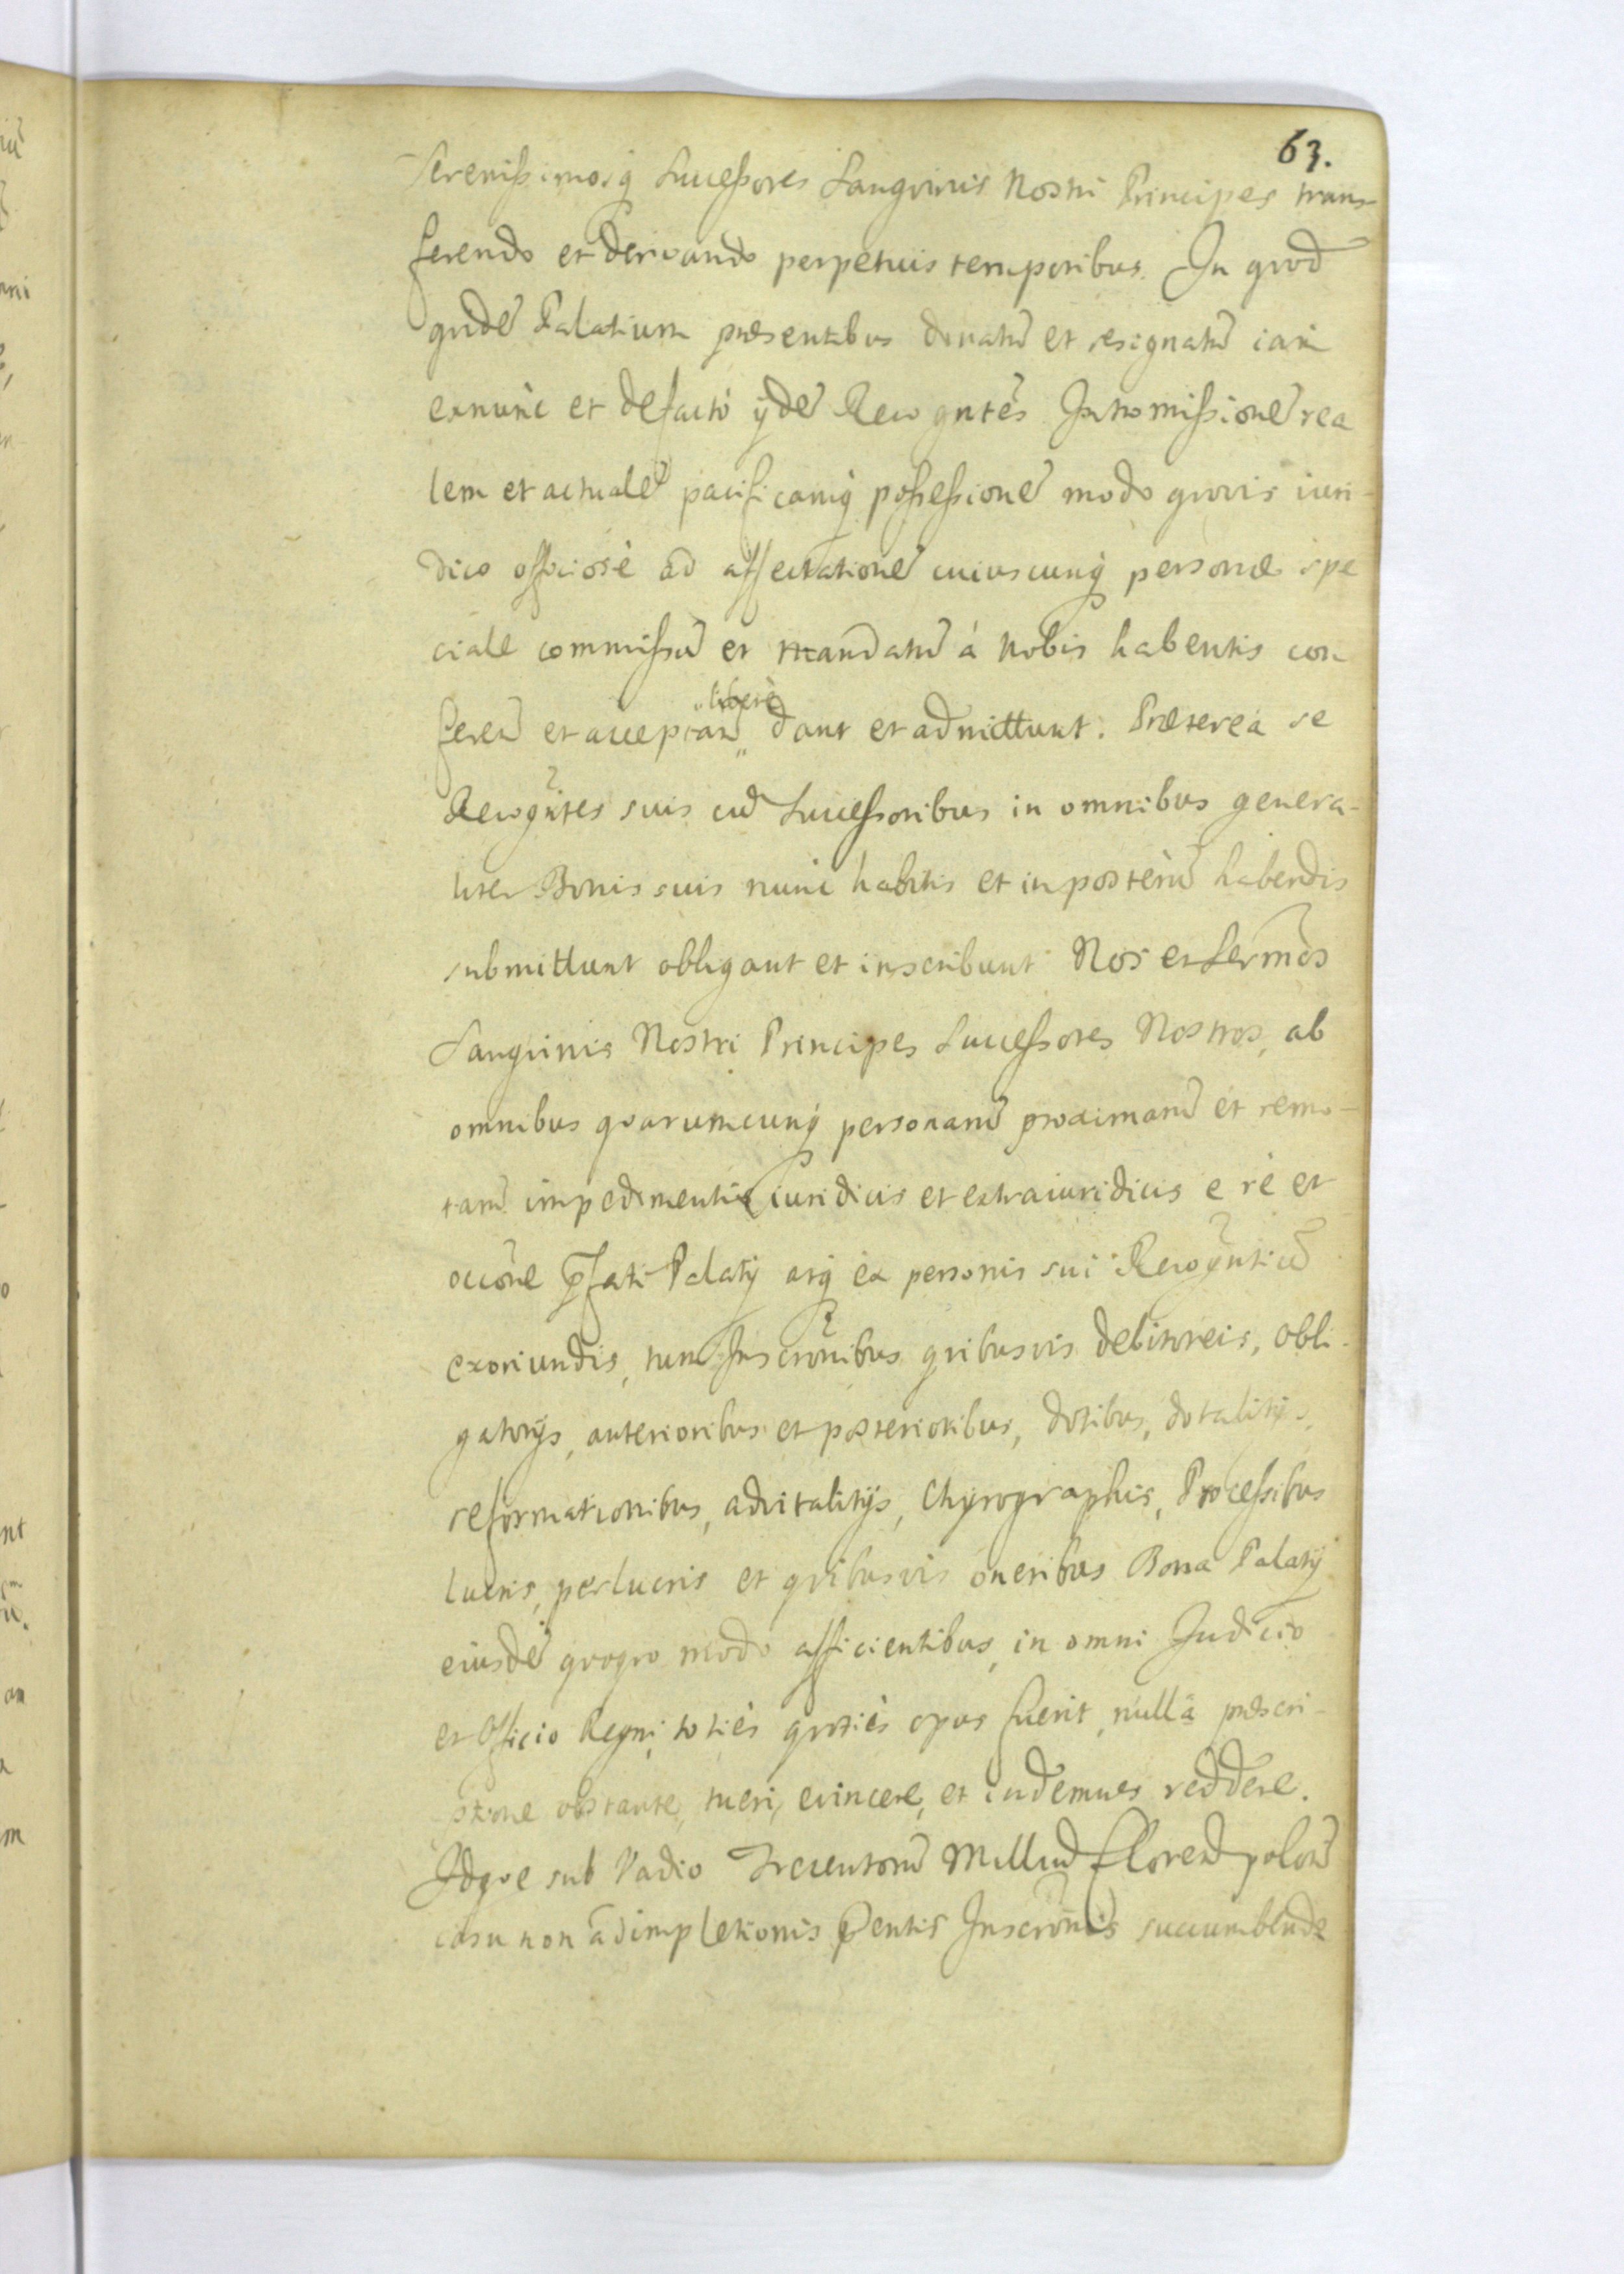 63.
Serenissimosq́ Successores Sangvinis Nostri Principes trans-
ferendo et derivando perpetuis temporibus. In qvod
qvidẽ Palatium præsentibus donatũ et resignatũ iam
exnunc et defactò ijdẽ Recogntẽs Intromissionẽ rea
lem et actualẽ pacificamq́ possessionẽ modo qvovis iuri-
dico officiosè ad affectationẽ cuiuscunq́ personæ spe
ciale commissũ et mandatũ à Nobis habentis con
liberè
feren̄ et acceptan̄ dant et admittunt. Præterea se
Recogn̄tes suis cũ Successoribus in omnibus genera-
liter Bonis suis nunc habitis et inposterũ habendis
submittunt obligant et inscribunt Nos et Serm̃os
Sangvinis Nostri Principes Successores Nostros, ab
omnibus qvarumcunq́ personarũ proximarũ et remo-
tarũ impedimentis iuridicis et extraiuridicis e rè et
occõne p̃fati Palatij atq́ ex personis sui Recogn̄tiũ
exoriundis, tum Inscrõnibus qvibusvis debitoreis, obli-
gatorijs, anterioribus et posterioribus, dotibus, dotalitijs,
reformationibus, advitalitijs, Chyrographis, Processibus
lucris, perlucris et qvibusvis oneribus Bona Palatij
eiusdẽ qvoqvo modo afficientibus, in omni Iudicio
et Officio Regni, totiès qvotiès opus fuerit, nullã præscri-
ptione obstante, tueri, evincere, et indemnes reddere.
Idqve sub Vadio Trecentorũ Milliũ Floren̄ polon̄
casu non adimpletionis p̃entis Inscrõnis succumben̄de